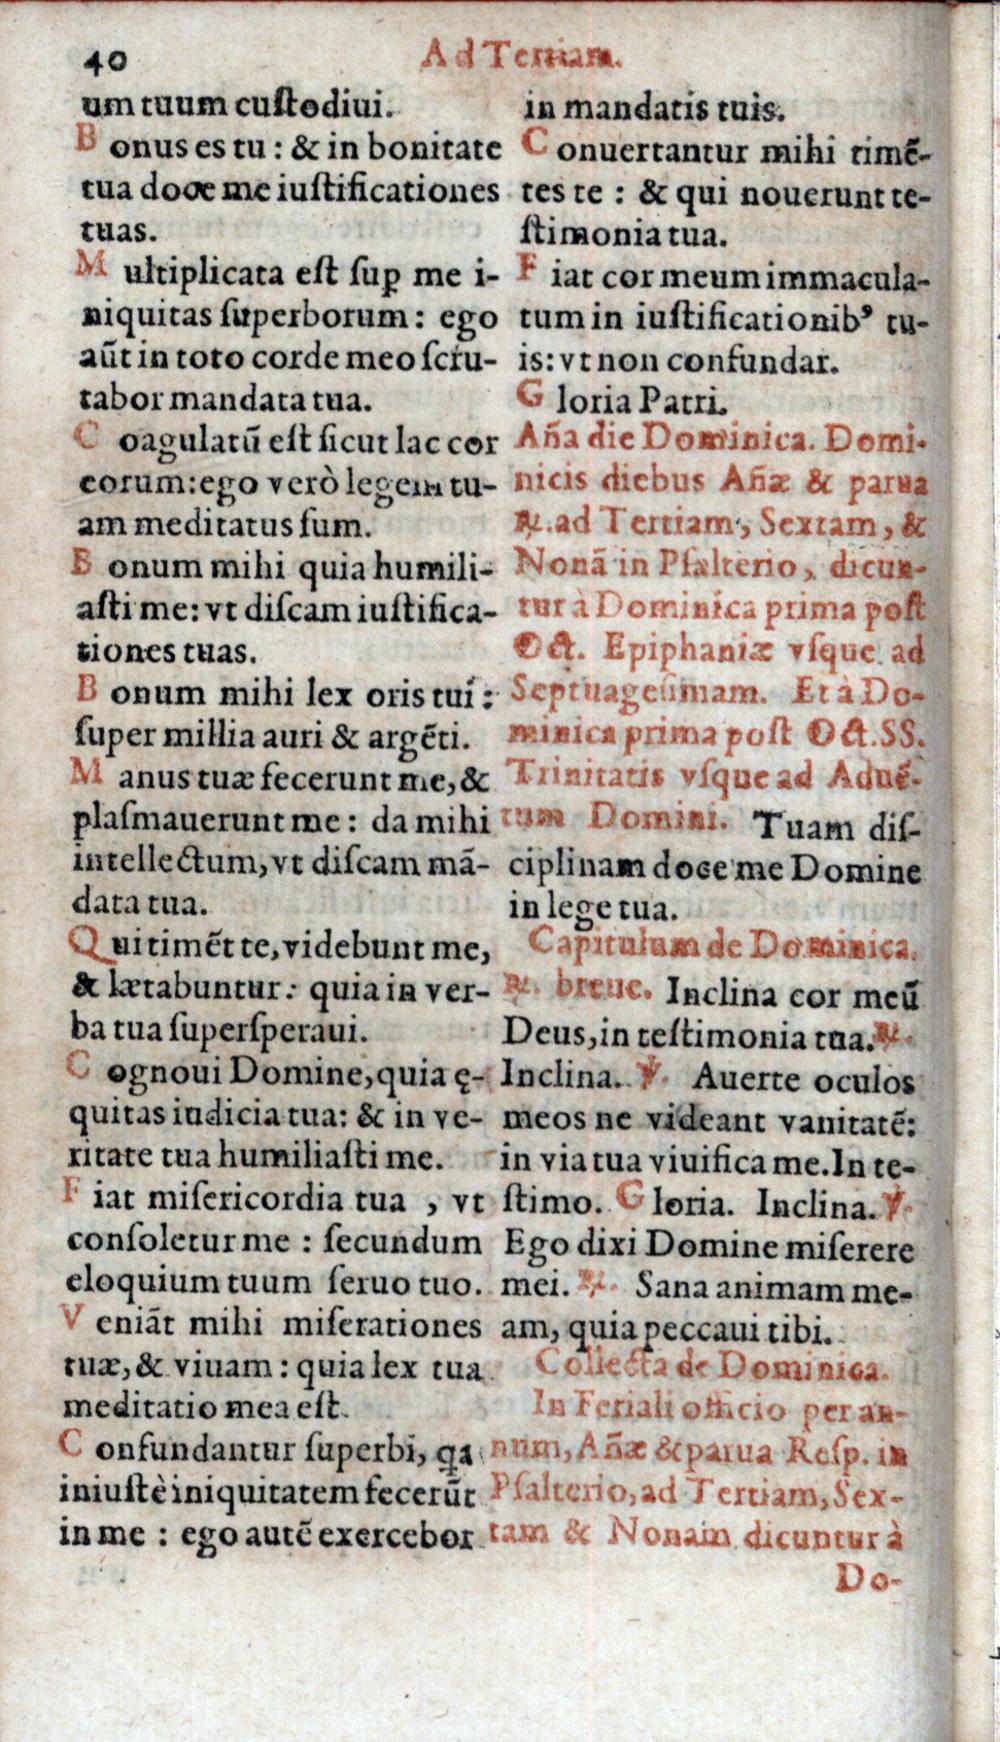 40
Ad Tertiam.
um tuum cuſtodiui.
Bonus es tu : & in bonitate
tua doce me iuſtificationes
tuas.
Multiplicata eſt ſuꝑ me i-
niquitas ſuperborum : ego
aūt in toto corde meo ſcru-
tabor mandata tua.
Coagulatū eſt ſicut lac cor
eorum: ego verò legem tu-
am meditatus ſum.
Bonum mihi quia humili-
aſti me: vt diſcam iuſtifica-
tiones tuas.
Bonum mihi lex oris tui :
ſuper millia auri & argēti.
Manus tuæ fecerunt me, &
plaſmauerunt me : da mihi
intellectum, vt diſcam mā-
data tua.
Qui timēt te, videbunt me,
& lætabuntur : quia in ver-
ba tua ſuperſperaui.
Cognoui Domine, quia ę-
quitas iudicia tua: & in ve-
ritate tua humiliaſti me.
Fiat miſericordia tua , vt
conſoletur me : ſecundum
eloquium tuum ſeruo tuo.
Veniāt mihi miſerationes
tuæ, & viuam : quia lex tua
meditatio mea eſt.
Confundantur ſuperbi, qa
iniuſtè iniquitatem fecerūt
in me : ego autē exercebor
in mandatis tuis.
Conuertantur mihi timē-
tes te : & qui nouerunt te-
ſtimonia tua.
Fiat cor meum immacula-
tum in iuſtificationibꝰ tu-
is: vt non confundar.
Gloria Patri.
Aña die Dominica. Domi-
nicis diebus Añæ & parua
℟. ad Tertiam, Sextam, &
Nonā in Pſalterio, dicun-
tur à Dominica prima poſt
Oct. Epiphaniæ vſque ad
Septuageſimam. Et à Do-
minica prima poſt Oct. SS.
Trinitatis vſque ad Aduē-
tum Domini. Tuam diſ-
ciplinam doce me Domine
in lege tua.
Capitulum de Dominica.
℟. breue. Inclina cor meū
Deus, in teſtimonia tua. ℟.
Inclina. ℣. Auerte oculos
meos ne videant vanitatē:
in via tua viuifica me. In te-
ſtimo. Gloria. Inclina. ℣.
Ego dixi Domine miſerere
mei. ℟. Sana animam me-
am, quia peccaui tibi.
Collecta de Dominica.
In Feriali officio per an-
num, Añæ & parua Reſp. in
Pſalterio, ad Tertiam, Sex-
tam & Nonam dicuntur à
Do-